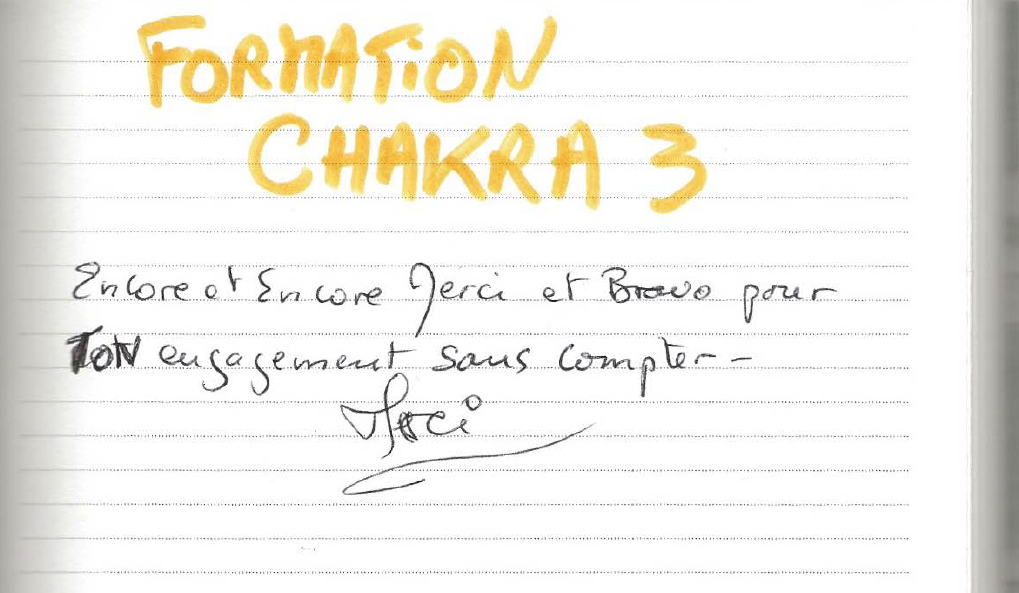 FORMATiON
CHAKRA 3
Encore et Encore Merci et Bravo pour
TON engagement sans compter -
Merci